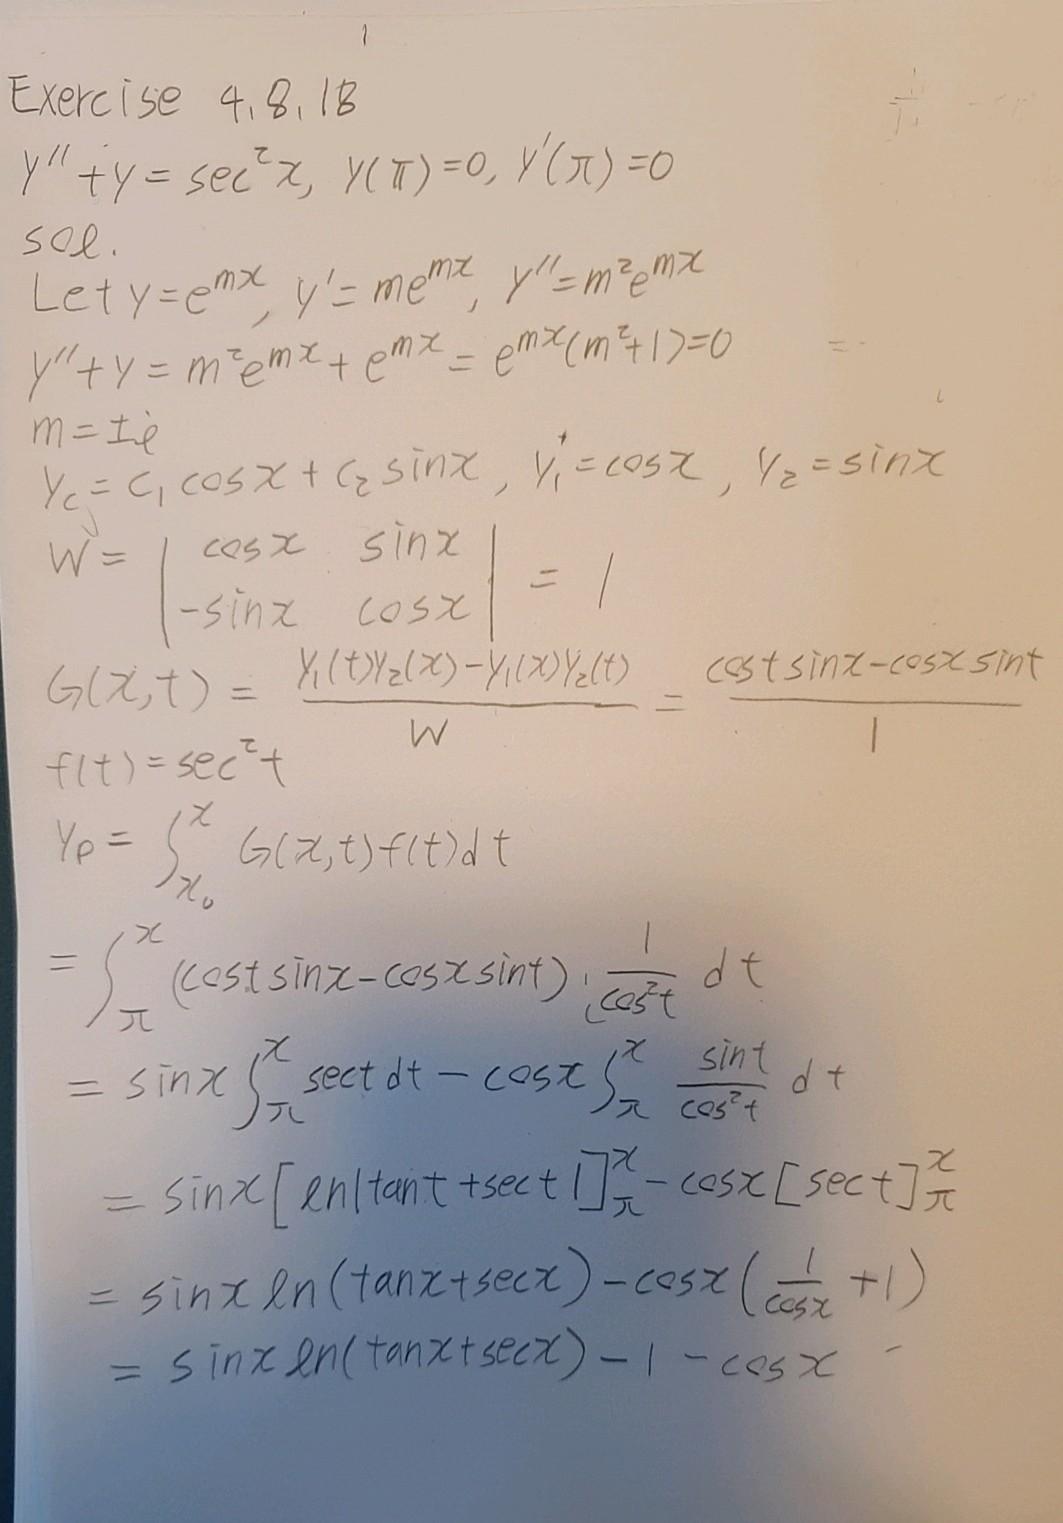 Exercise 4,8,18
y'' + y = sec²x, y(π)=0, y'(π)=0
sol.
Let y = e^{mx}, y' = me^{mx}, y'' = m²e^{mx}
y'' + y = m²e^{mx} + e^{mx} = e^{mx}(m²+1)=0
m = ±i
y_c = c₁ cosx + c₂ sinx, y₁ = cosx, y₂ = sinx
W = | cosx sinx |
| -sinx cosx | = 1
G(x,t) = (y₁(t)y₂(x) - y₁(x)y₂(t)) / W = (cost sinx - cosx sint) / 1
f(t) = sec²t
y_p = ∫_{x₀}^{x} G(x,t) f(t) dt
= ∫_{π}^{x} (cost sinx - cosx sint) · 1/cos²t dt
= sinx ∫_{π}^{x} sect dt - cosx ∫_{π}^{x} sint/cos²t dt
= sinx [ln|tant + sect|]_{π}^{x} - cosx [sect]_{π}^{x}
= sinx ln(tanx + secx) - cosx (1/cosx + 1)
= sinx ln(tanx + secx) - 1 - cosx